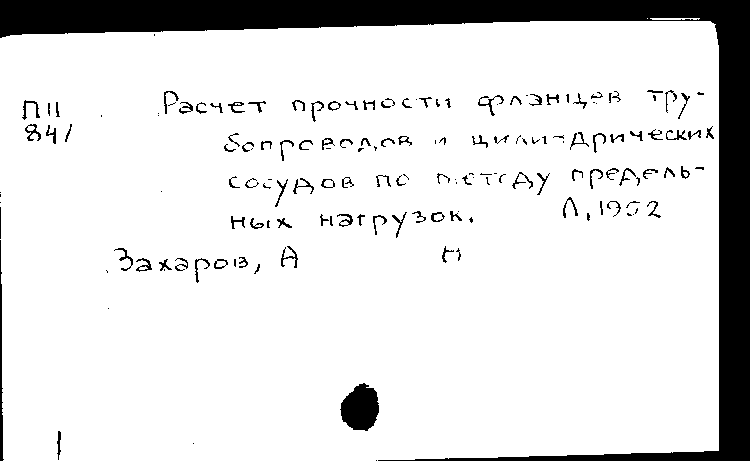 ПII Расчет прочности фланцев тру-
841 бопроводов и цилиндрических
сосудов по методу предель-
ных нагрузок. Л, 1952
Захаров, А Н